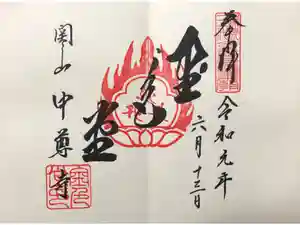 奉拝
令和元年
六月十三日
金色堂
関山
中尊寺